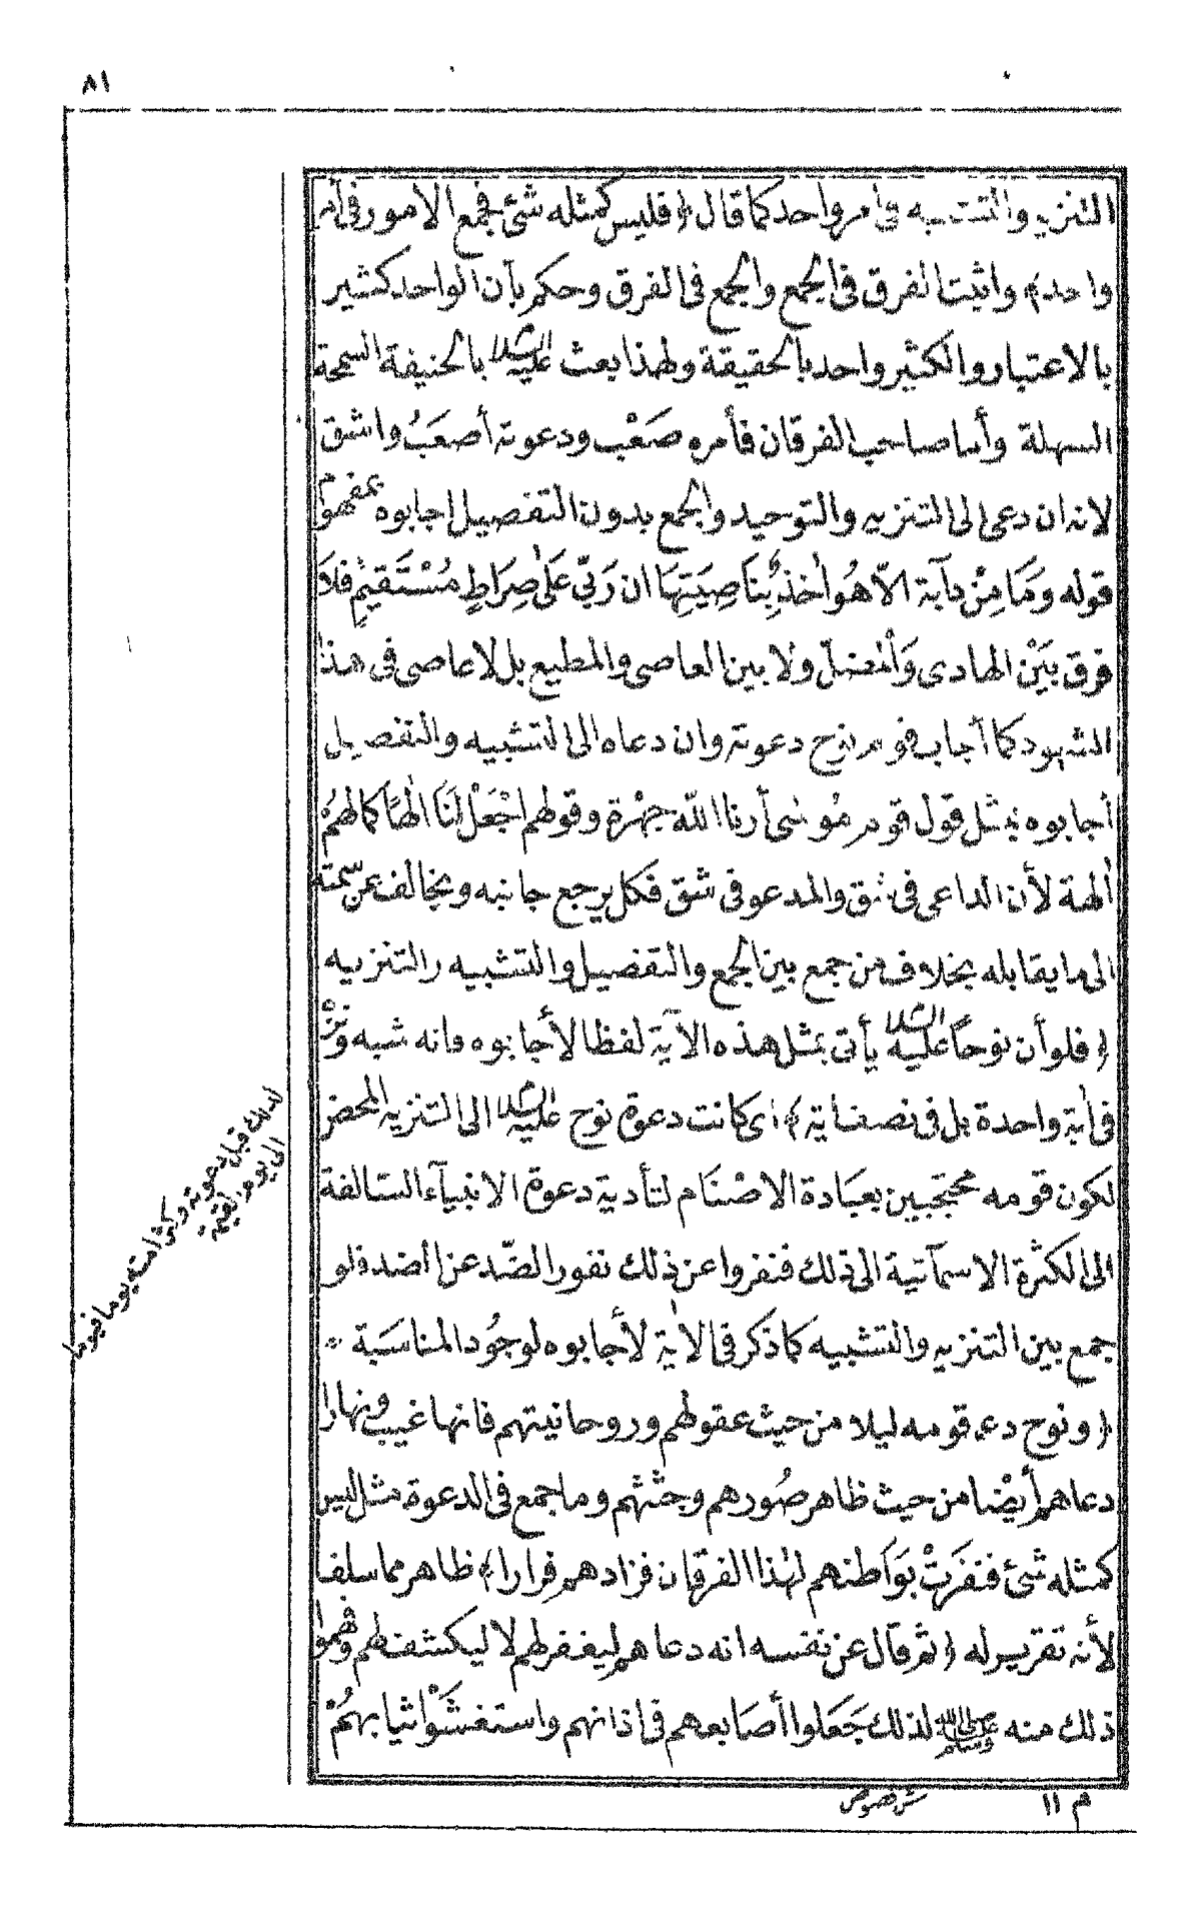 ٨١
التنزيه والتشبيه فى أمر واحد كما قال ﴿ فليس كمثله شئ فجمع الأمور فى أمر
واحد ﴾ واثبت الفرق فى الجمع والجمع فى الفرق وحكم بأن الواحد كثير
بالاعتبار والكثير واحد بالحقيقة ولهذا بعث عليه السلام بالحنيفة السمحة
السهلة وأما صاحب الفرقان فأمره صَعْب ودعوته أصعَبُ واشق
لانه ان دعى الى التنزيه والتوحيد والجمع بدون التفصيل اجابوه بمفهوم
قوله وَمَا مِنْ دآبة الّا هُو اٰخذٌ بِنَاصِيَتِهَا ان رَبّى عَلىٰ صِرَاطٍ مُسْتَقيمٍ فلَا
فرق بَيَْن الهادى وَالْمضلّ ولا بين العاصى والمطيع بل لا عاصى فى هذا
الشهود كما أجاب قوم نوح دعوته وان دعاه الى التشبيه والتفصيل
أجابوه بمثل قول قوم مُوسٰى أرنا اللّه جهْرة وقولهم اجْعَلْ لَنَا الٰهًا كما لهمُ
اٰلهة لأن الداعى فى شق والمدعو فى شق فكل يرجع جانبه ويخالف عن سمته
الى ما يقابله بخلاف من جمع بين الجمع والتفصيل والتشبيه والتنزيه
﴿ فلو أن نوحاً عليه السلام يأتى بمثل هذه الآية لفظا لأجابوه فانه شبه ونزْه
فى اٰية واحدة بل فى نصف اية ﴾ اى كانت دعوة نوح عليه السلام الى التنزيه المحض
لكون قومه محتجبين بعبادة الاصْنَام لتأدية دعوة الانبيآء السّالفة
الى الكثرة الاسمآئية الى ذلك فنفروا عن ذلك نفور الضّد عن الضد فلو
جمع بين التنزيه والتشبيه كما ذكر فى الاٰية لأجابوه لوجُود المناسَبة *
﴿ ونوح دعا قومه ليلا من حيث عقولهم وروحانيتهم فانها غيب ونهارا
دعاهم أيضْا من حيث ظاهر صُورهم وجثثهم وما جمع فى الدعوة مثل ليس
كمثله شئ فنفَرَتْ بَوَاطنهم لهٰذا الفرقان فزادهم فِرارا ﴾ ظاهر مما سلف
لأنه تقرير له ﴿ ثم قال عن نفسه انه دعاهم ليغفر لهم لا ليكشف لهم وفهموا
ذلك منه صلى الله عليه وسلم لذلك جَعَلوا أصَابعهم فى اذانهم واستغشَوْا ثيابهُمْ
لذلك قبل دعوته وكثر امته يوما فيوما
الى يوم القيمة
م ١١
شرح فصوص